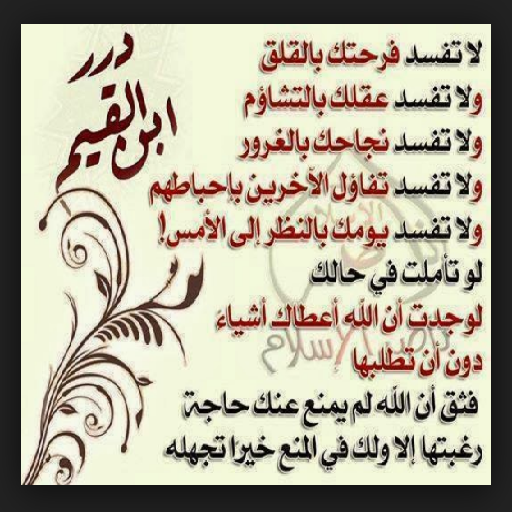 درر
ابن القيم
لا تفسد فرحتك بالقلق
ولا تفسد عقلك بالتشاؤم
ولا تفسد نجاحك بالغرور
ولا تفسد تفاؤل الآخرين بإحباطهم
ولا تفسد يومك بالنظر إلى الأمس!
لو تأملت في حالك
لوجدت أن الله أعطاك أشياءَ
دون أن تطلبها
فثق أن الله لم يمنع عنك حاجة
رغبتها إلا ولك في المنع خيرا تجهله